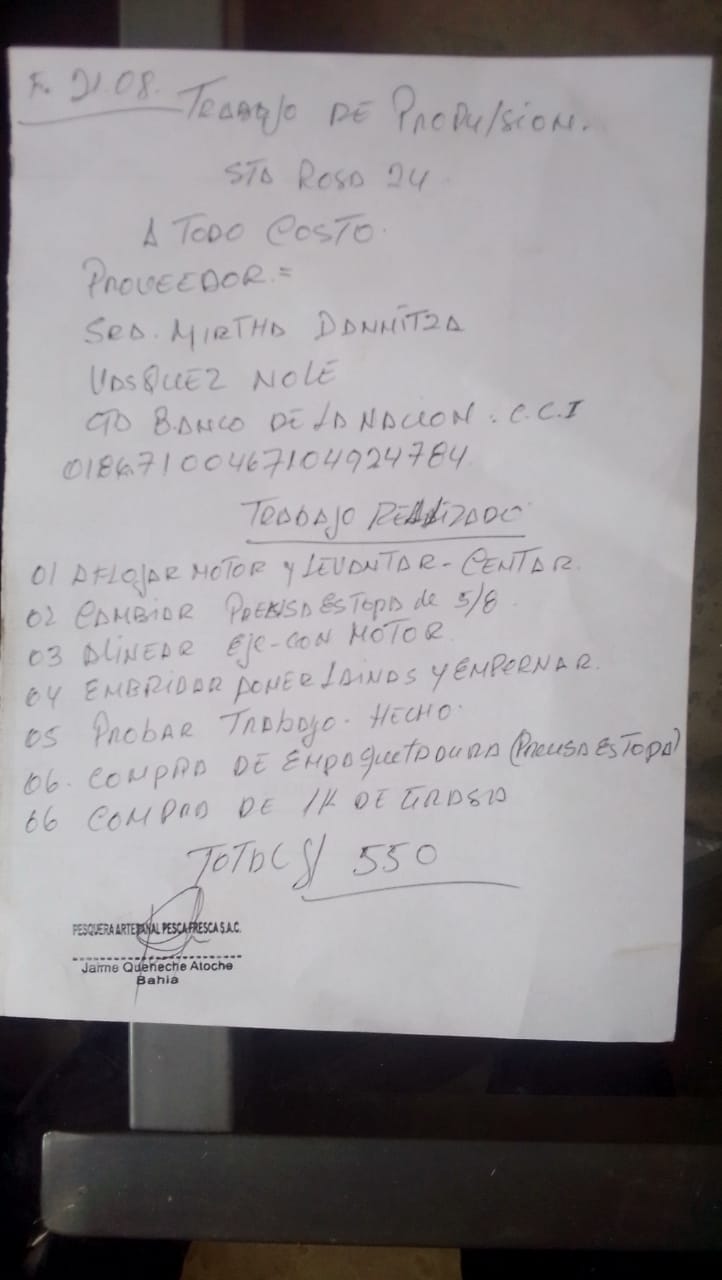 F. 21.08.
TRABAJO DE PROPULSION.
STA ROSA 24
A TODO COSTO.
PROVEEDOR.=
SRA. MIRTHA DANNITZA
VASQUEZ NOLE
CTA BANCO DE LA NACION. C.C.I
01867100467104924784
TRABAJO REALIZADO
01 AFLOJAR MOTOR Y LEVANTAR - CENTAR.
02 CAMBIAR PRENSA ESTOPA de 5/8
03 ALINEAR EJE-CON MOTOR.
04 EMBRIDAR PONER LAINAS Y EMPERNAR.
05 PROBAR TRABAJO. HECHO.
06. COMPRA DE EMPAQUETADURA (PRENSA ESTOPA)
06 COMPRA DE 1K DE GRASA
TOTAL S/ 550
PESQUERA ARTESANAL PESCA FRESCA S.A.C.
Jaime Queneche Atoche
Bahia